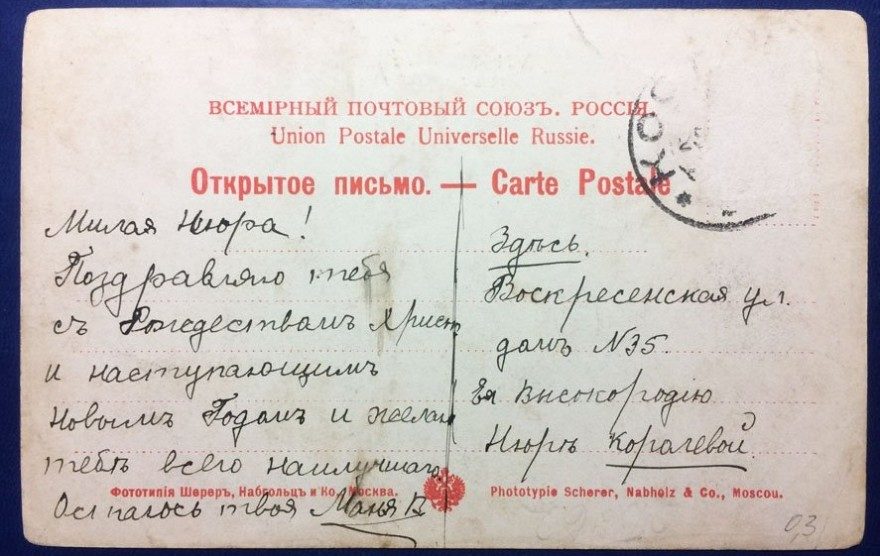 ВСЕМІРНЫЙ ПОЧТОВЫЙ СОЮЗЪ. РОССІЯ.
Union Postale Universelle Russie.
Открытое письмо. — Carte Postale
Милая Нюра!
Поздравляю тебя
съ Рождествомъ Христ
и наступающимъ
Новымъ Годомъ и желаю
тебѣ всего наилучшаго.
Остаюсь твоя Маня В
Здѣсь.
Воскресенская ул.
домъ №35.
Ея Высокородію
Нюрѣ Королевой
Фототипія Шереръ, Набгольцъ и Ко. Москва.
Phototypie Scherer, Nabholz & Co., Moscou.
0,3